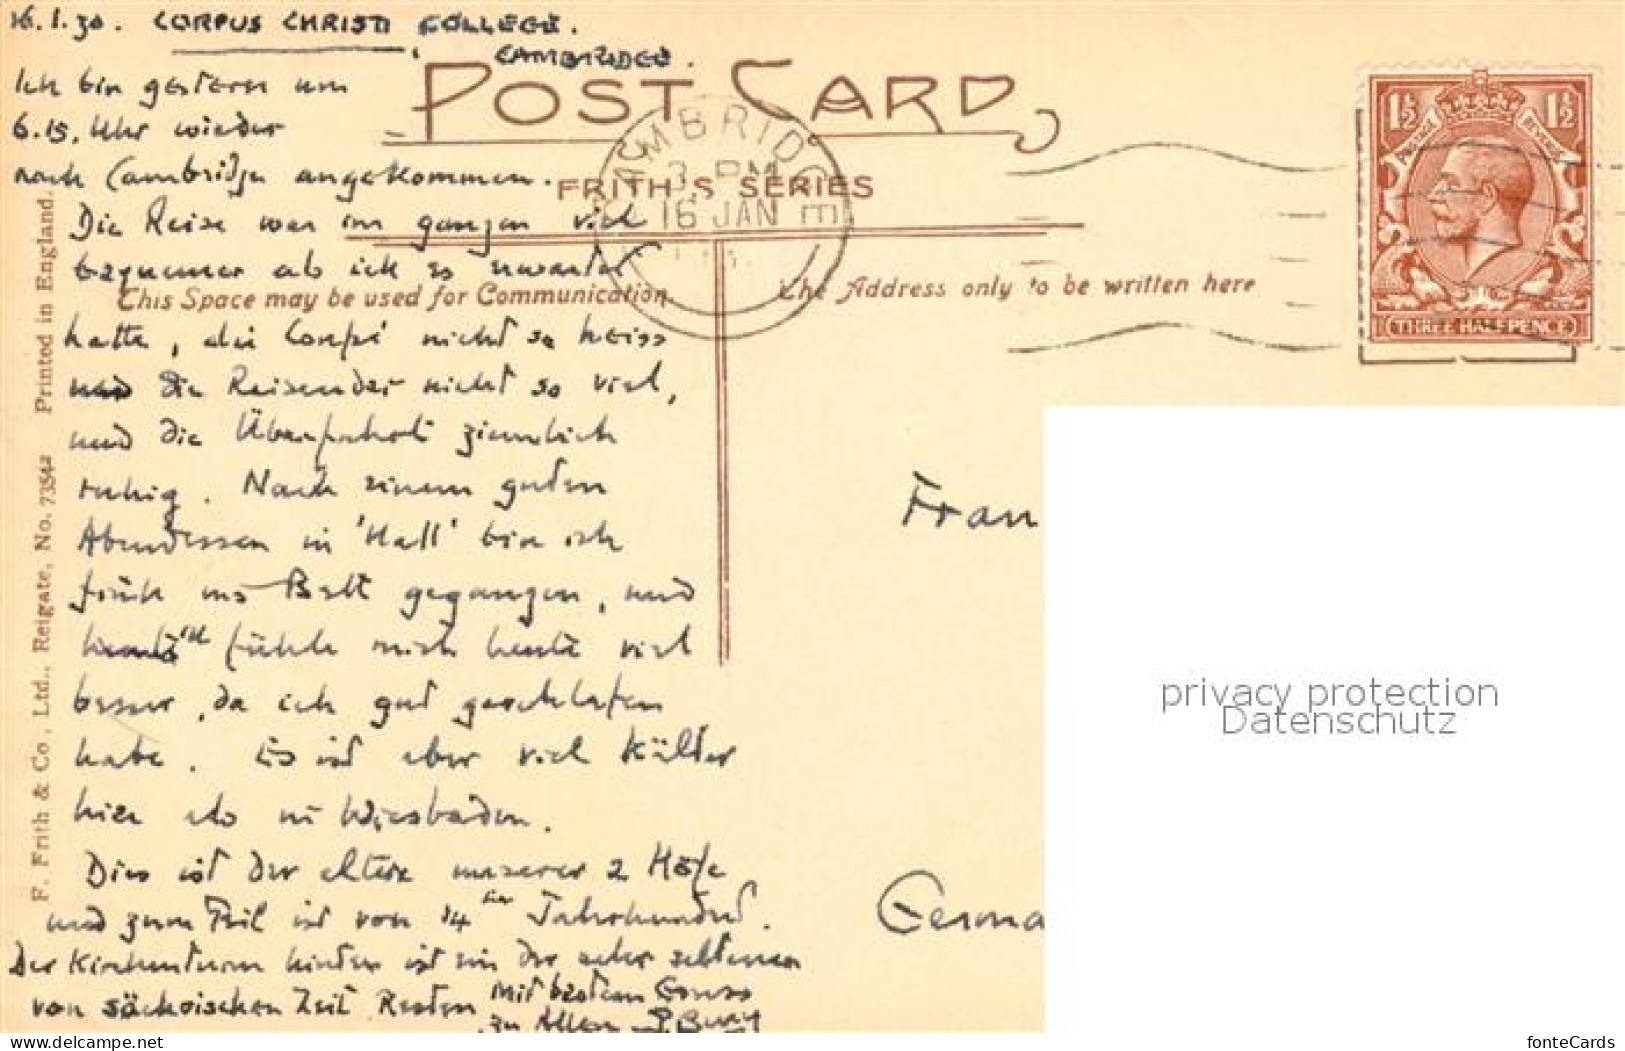 16.1.30. CORPUS CHRISTI COLLEGE.
CAMBRIDGE.
Ich bin gestern um
6.15. Uhr wieder
nach Cambridge angekommen.
Die Reise war im ganzen viel
bequemer als ich es erwartet
hatte, die Coupé nicht so heiss
und die Reisender nicht so viel,
und die Überfahrt ziemlich
ruhig. Nach einem guten
Abendessen in 'Hall' bin ich
früh ins Bett gegangen, und
ich fühle mich heute viel
besser, da ich gut geschlafen
habe. Es ist aber viel kälter
hier als in Wiesbaden.
Dies ist der ältere unserer 2 Höfe
und zum Teil ist von 14 Jahrhundert.
Der Kirchenturm hinten ist ein der sehr seltenen
von sächsischen Zeit Resten
Mit bestem Gruss
zu Allen
POST CARD
FRITH'S SERIES
This Space may be used for Communication.
The Address only to be written here
CAMBRIDGE
3 PM
16 JAN
1½ 1½
POSTAGE REVENUE
THREE HALFPENCE
F. Frith & Co., Ltd., Reigate, No. 73542 Printed in England.
Fran
Germa
privacy protection
Datenschutz
www.delcampe.net
fonteCards